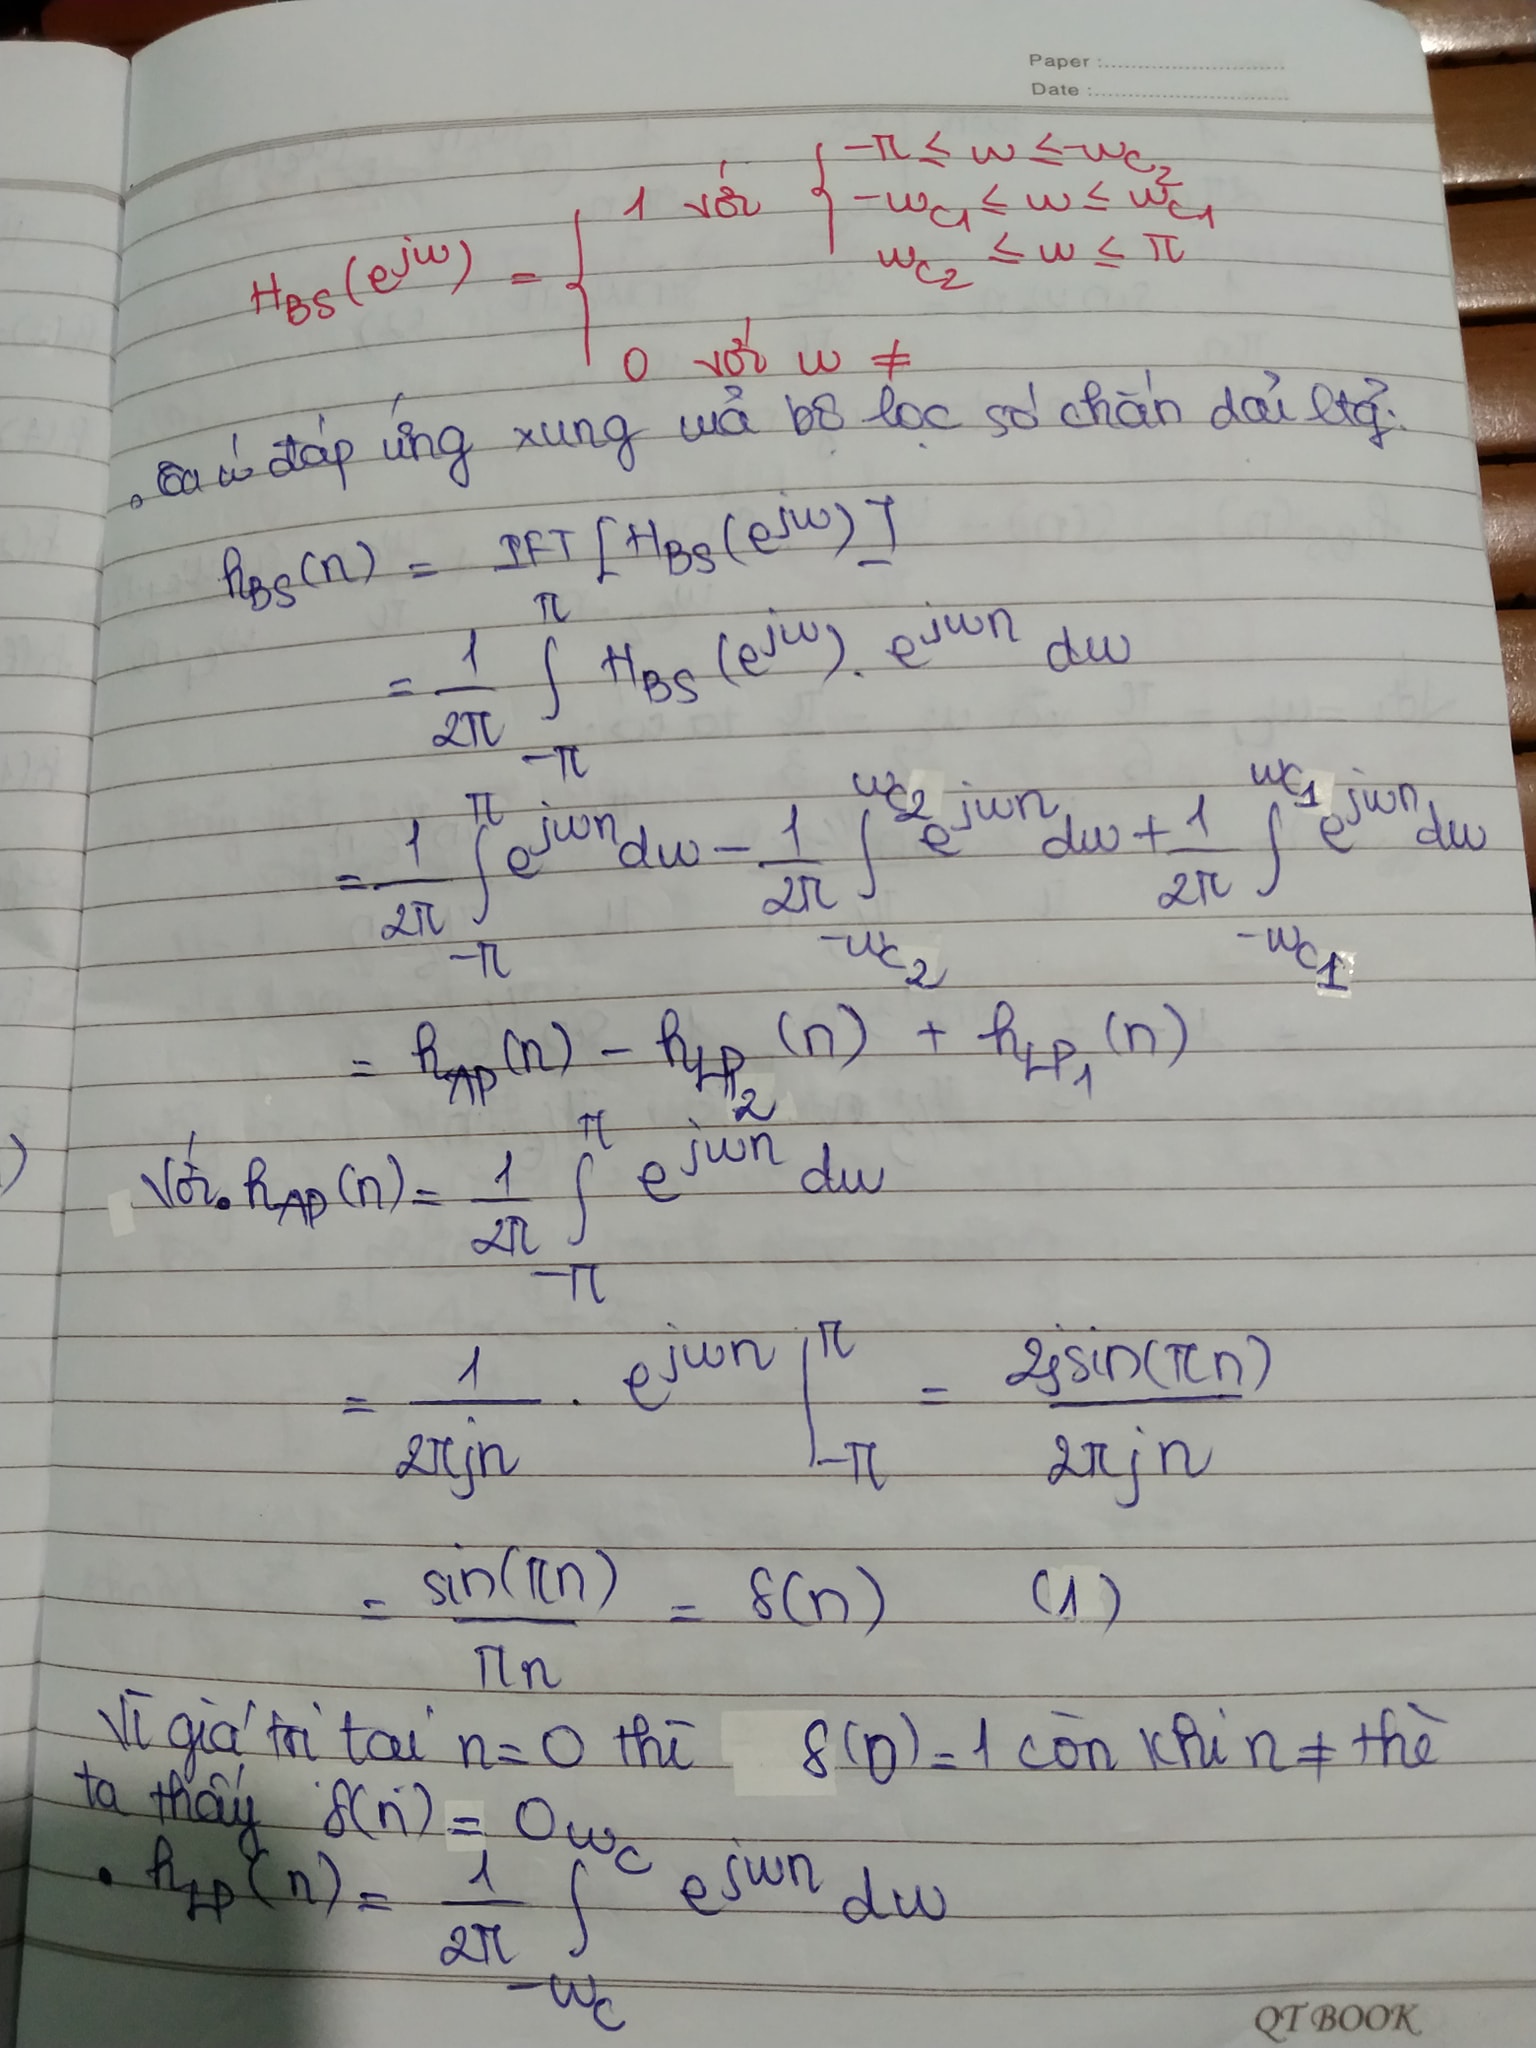 Paper :
Date :
H_BS(e^{jω}) = { 1 với { -π ≤ ω ≤ -ω_{c2}
-ω_{c1} ≤ ω ≤ ω_{c1}
ω_{c2} ≤ ω ≤ π
0 với ω ≠
. Ta có đáp ứng xung của bộ lọc số chắn dải ltg:
h_BS(n) = IFT [H_BS(e^{jω})]
= \frac{1}{2π} ∫_{-π}^{π} H_BS(e^{jω}). e^{jωn} dω
= \frac{1}{2π} ∫_{-π}^{π} e^{jωn} dω - \frac{1}{2π} ∫_{-ω_{c2}}^{ω_{c2}} e^{jωn} dω + \frac{1}{2π} ∫_{-ω_{c1}}^{ω_{c1}} e^{jωn} dω
= h_AP(n) - h_{LP2}(n) + h_{LP1}(n)
Với. h_AP(n) = \frac{1}{2π} ∫_{-π}^{π} e^{jωn} dω
= \frac{1}{2πjn} . e^{jωn} |_{-π}^{π} = \frac{2jsin(πn)}{2πjn}
= \frac{sin(πn)}{πn} = δ(n) (1)
Vì giá trị tại n = 0 thì δ(n) = 1 còn khi n ≠ thì
ta thấy δ(n) = 0
. h_LP(n) = \frac{1}{2π} ∫_{-ω_c}^{ω_c} e^{jωn} dω
QT BOOK